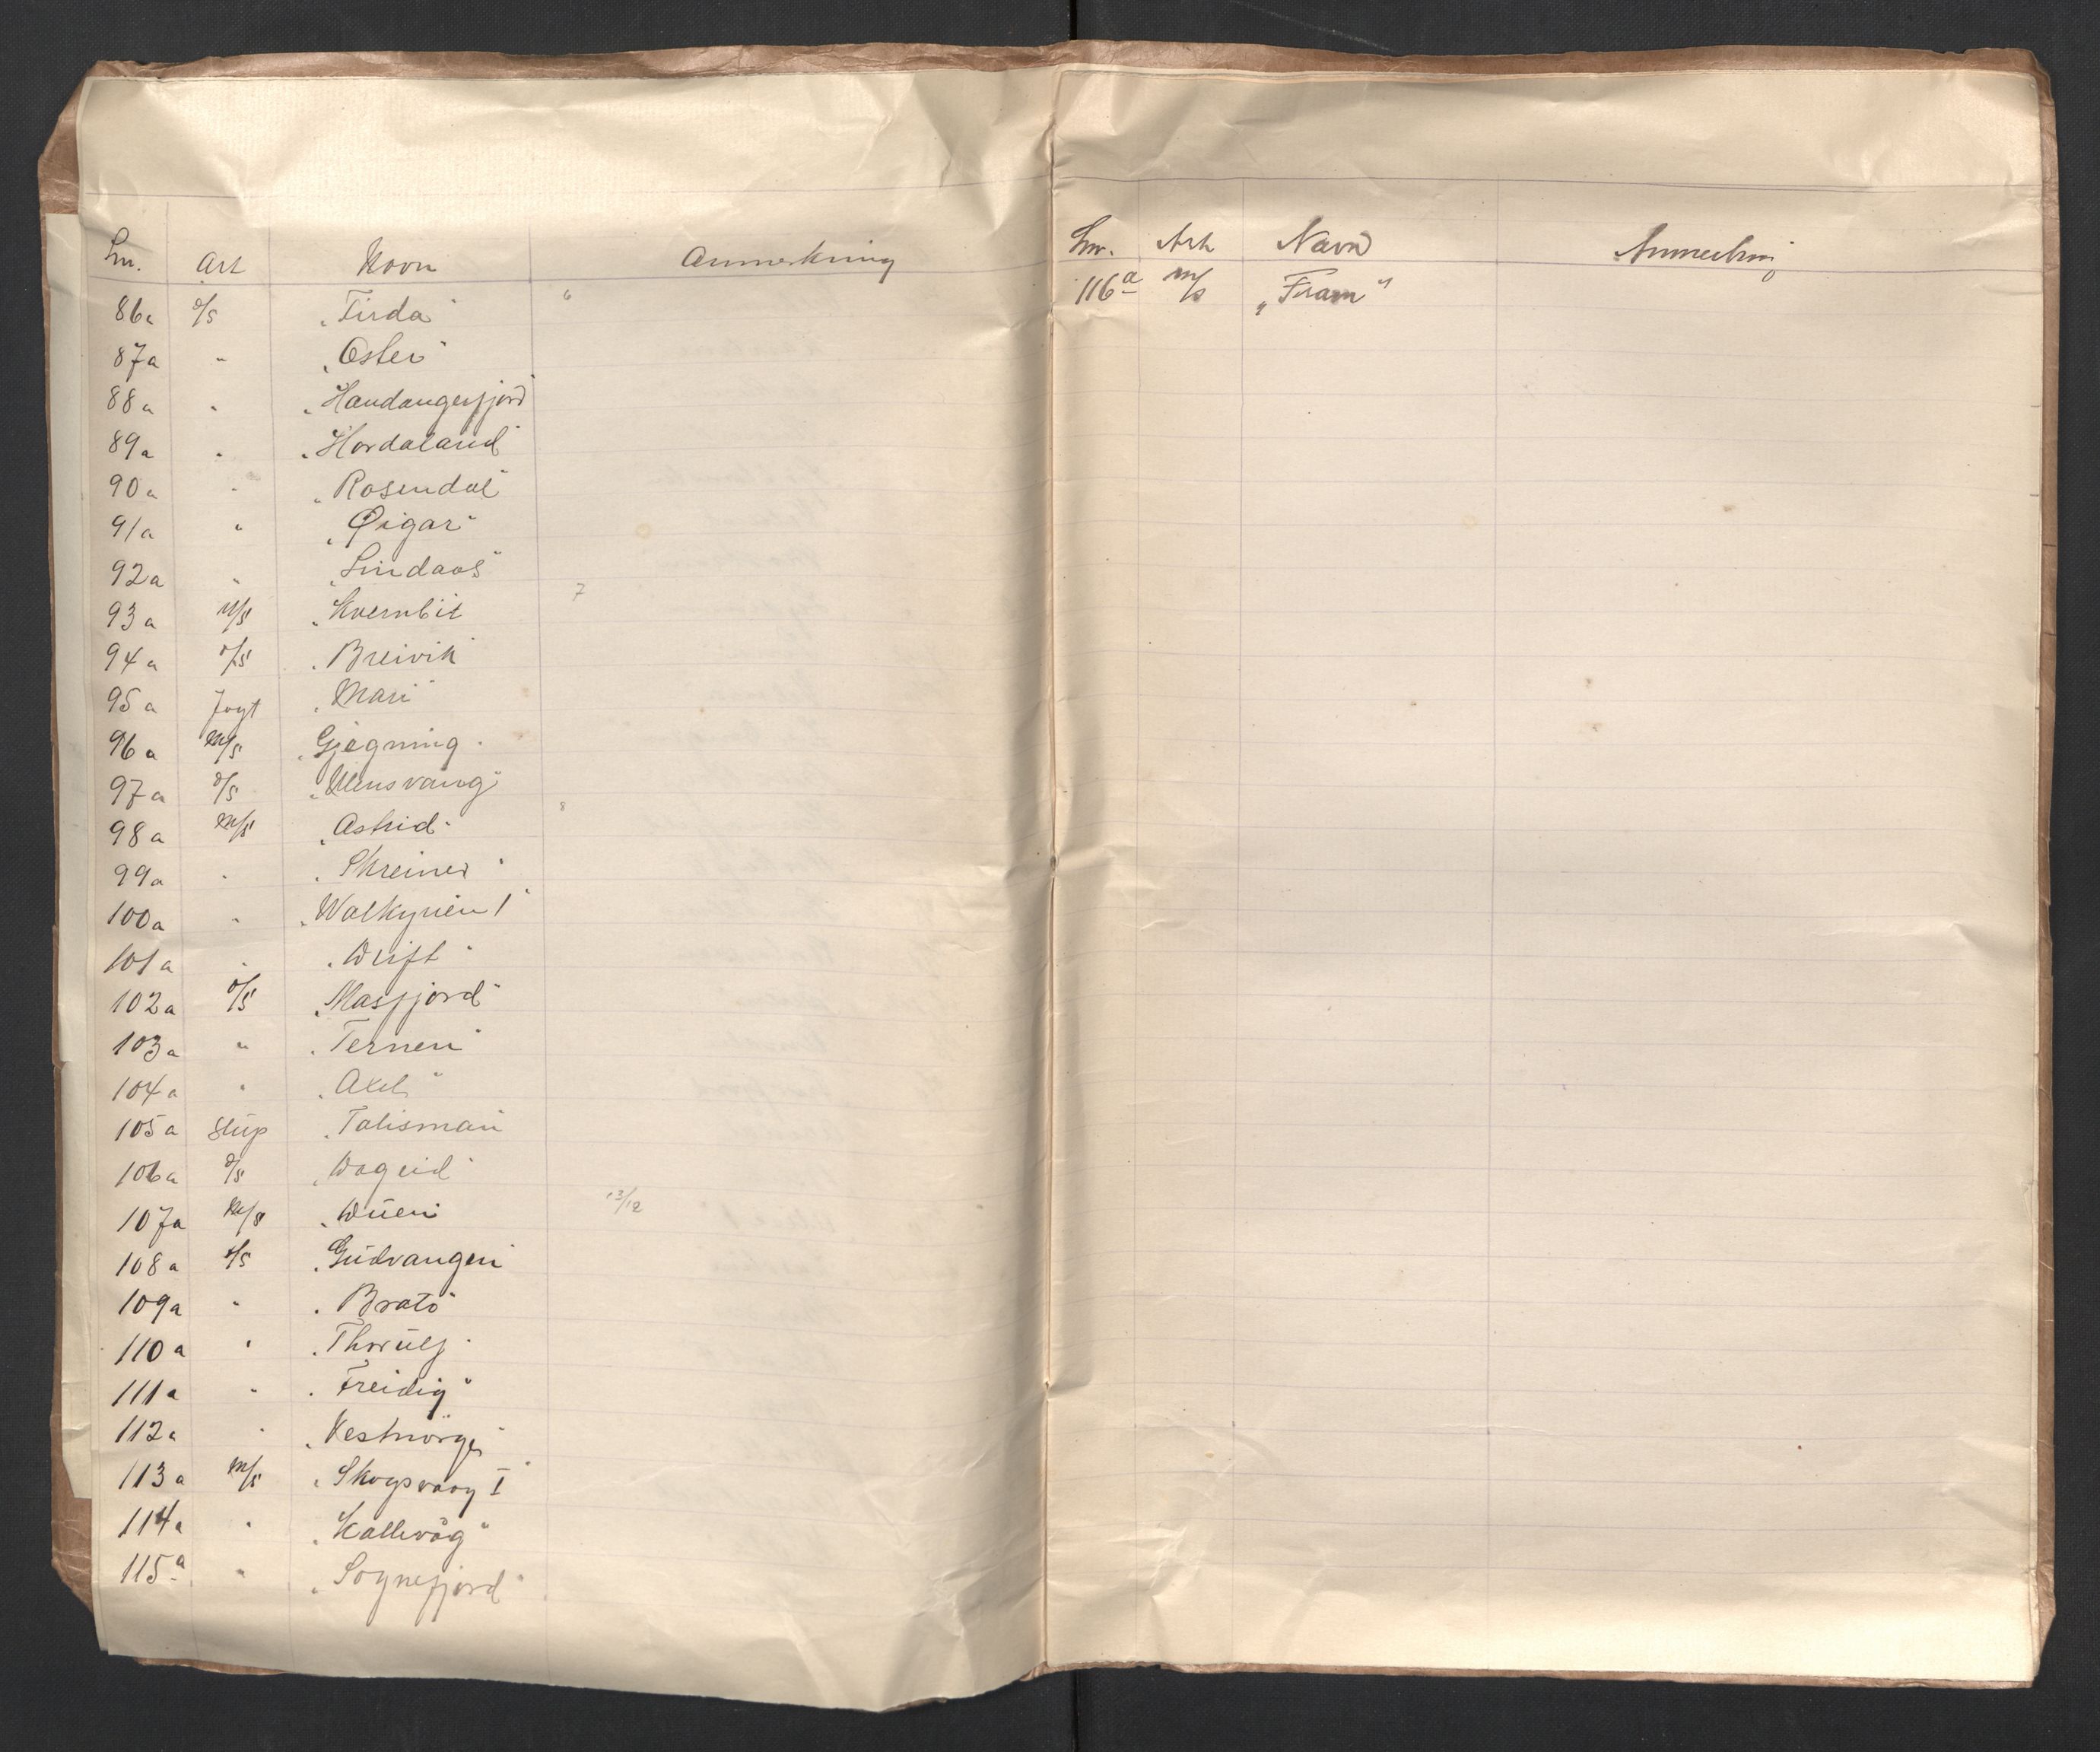 Lnr. Art Navn Anmerkning
86a d/s „Firda" 6
87a " „Oster"
88a " „Hardangerfjord"
89a " „Hordaland"
90a " „Rosendal"
91a " „Øigar"
92a " „Lindaas"
93a m/s „Kvernbit 7
94a d/s „Breivik"
95a Jagt „Mari"
96a m/s „Gjegning"
97a d/s „Ullensvang"
98a m/s „Astrid" 8
99a " „Skreiner"
100a " „Walkyrien 1"
101a " „Wrift"
102a d/s „Masfjord"
103a " „Ternen"
104a " „Axel"
105a Slup „Talisman"
106a d/s „Wageid"
107a m/s „Wüen" 13/12
108a d/s „Gudvangen"
109a " „Bratö"
110a " „Thorulf"
111a " „Freidig"
112a " „Vestnorge"
113a m/s „Skogsvaag I"
114a " „Kallevåg"
115a " „Sognefjord"
Lnr. Art Navn Anmerkning
116a m/s „Fram"